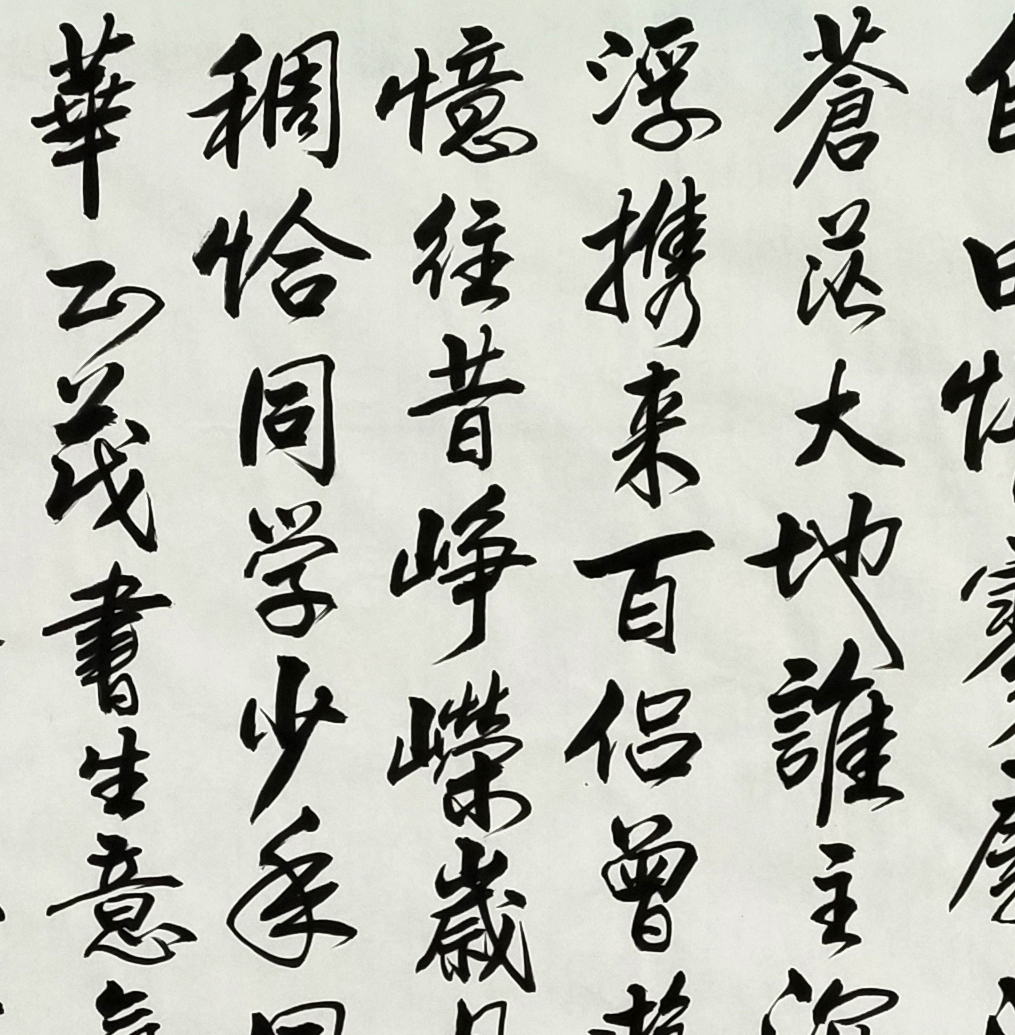 蒼茫大地誰主
浮携来百侣曾
憶往昔崢嶸歲
稠恰同学少年
華正茂書生意